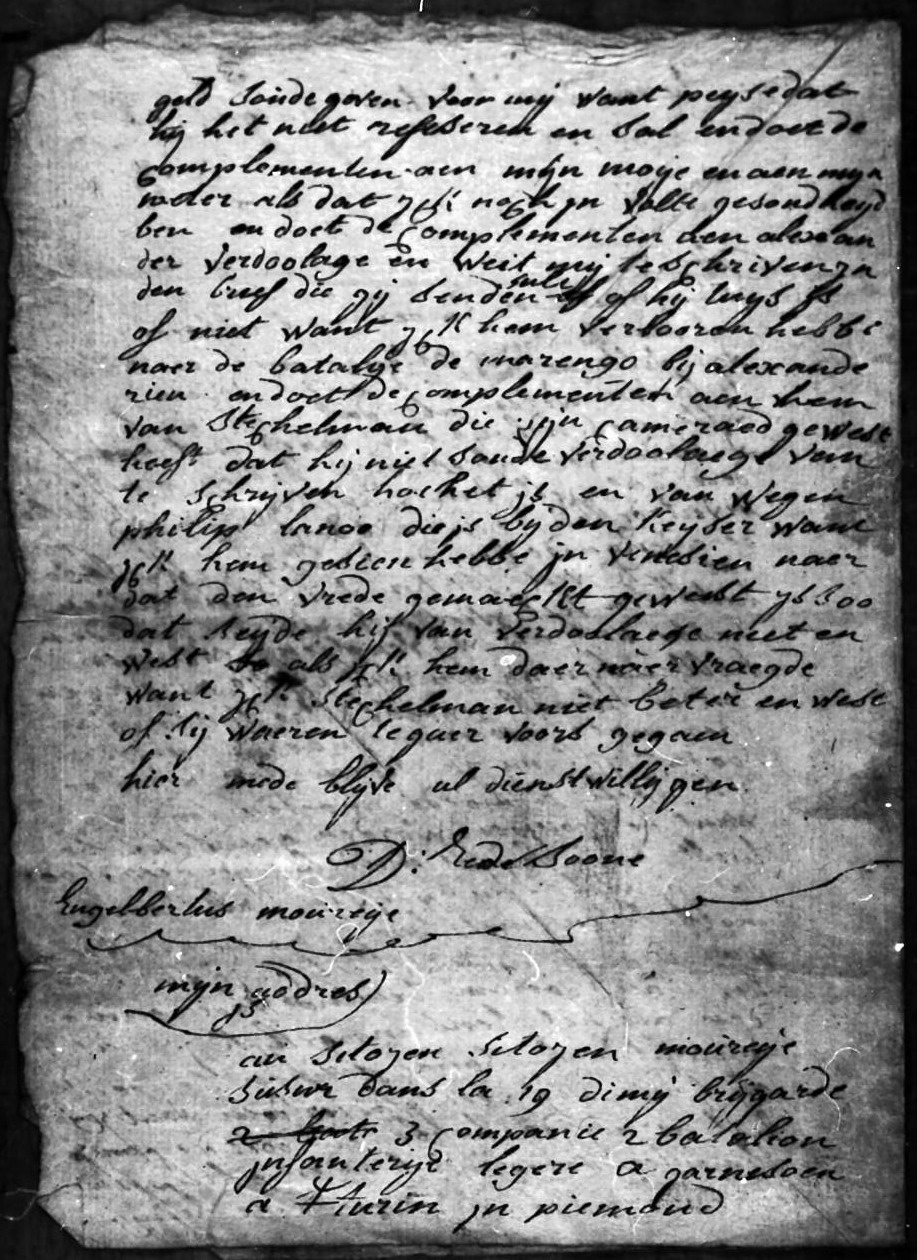 geld soude geven voor mij want peyse dat
hij het niet refeseren en sal en doet de
complementen aen mijn moije en aen mijn
meter als dat yck noch jn volle gesondheyd
ben en doet de complementen aen alexan
der verdoolage en weit mij te schriven jn
den brief die gij senden sult of hij tuys js
of niet want yck hem verlooren hebbe
naer de batalye de marengo bij alexande
rien en doet de complementen aen hem
van stechelman die sijn cameraed gewest
heeft dat hij niet soude verdoolaege van
te schrijven hoe het js en van wegen
philip lanoo die js by den keyser want
yck hem gesien hebbe jn venesien naer
dat den vrede gemaeckt gewest ys soo
dat seyde hij van verdoolaege niet en
west als yck hem daer naer vraegde
want yck stechelman niet beter en west
of sij waeren te quer voors gegaen
hier mede blijve ul dienstwilligen
D: Soone
Engelbertus moureye
mijn addres
js
au sitoyen sitoyen moureye
susur dans la 19 dimij brijgarde
2 bat 3 companie 2 batalion
jnfanterije legere a garnesoen
a Tturin jn piemond